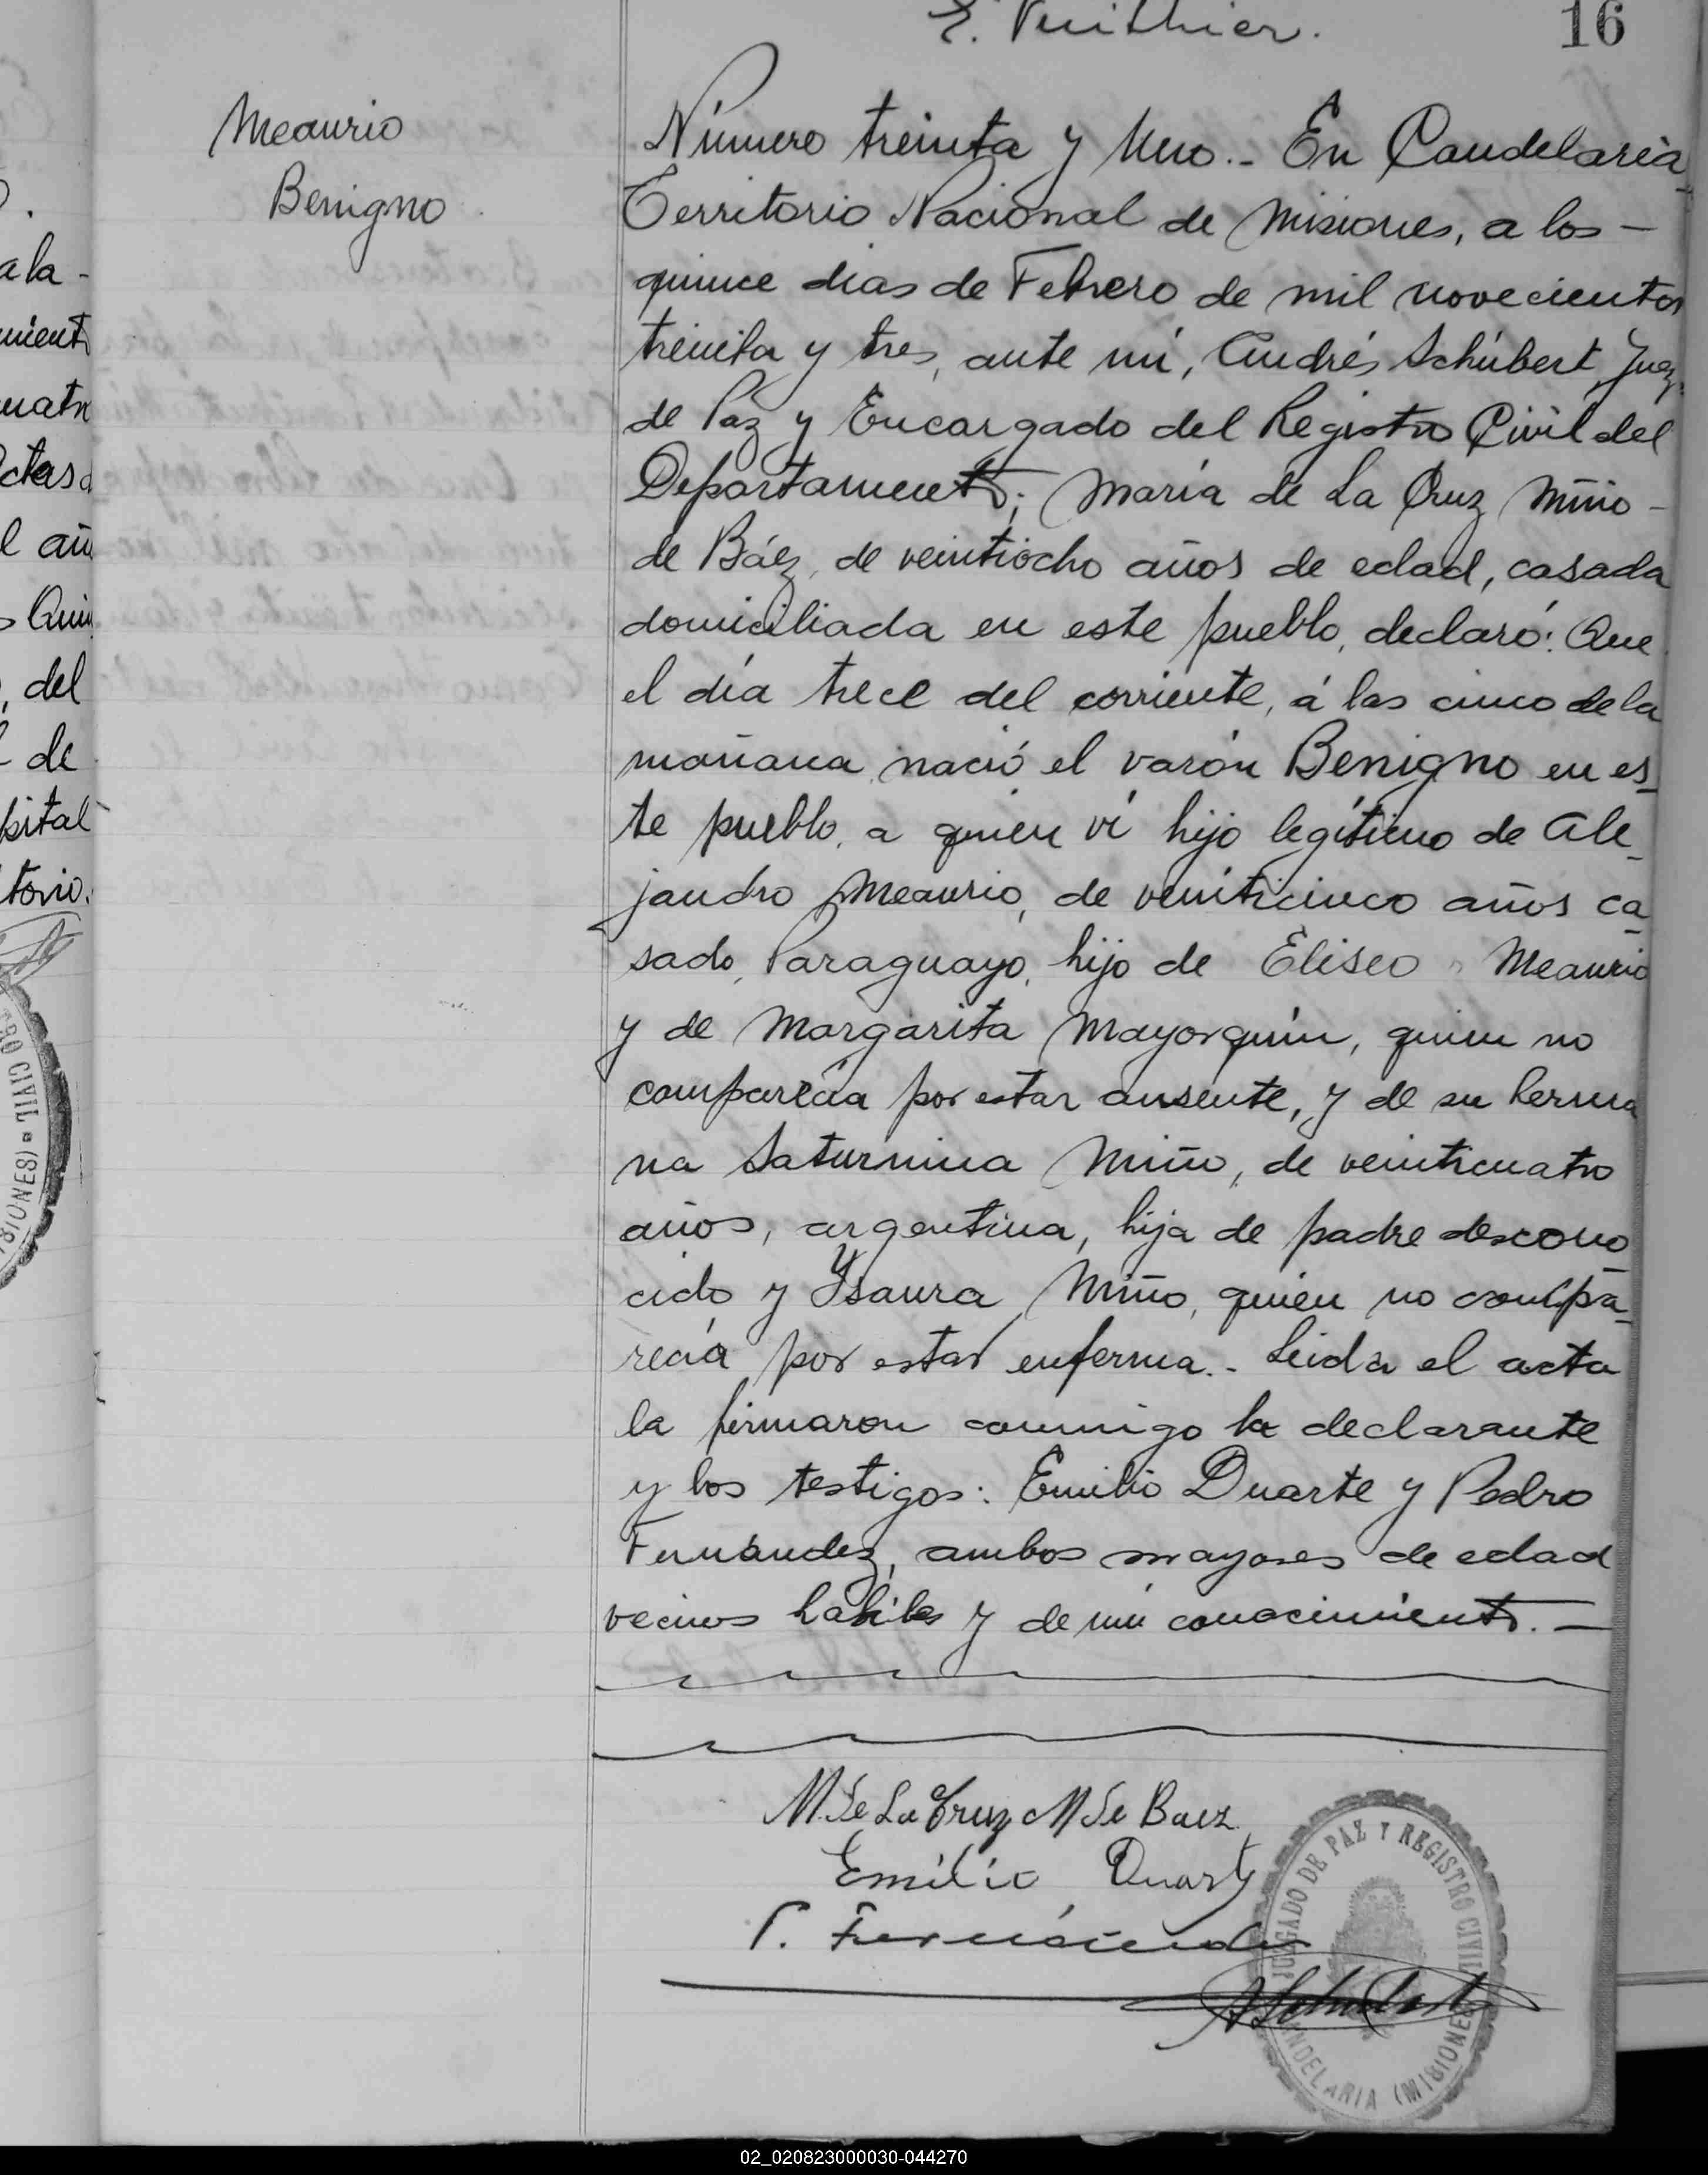 E. Vuithier.
16
Meaurio
Benigno
Número treinta y Uno.- En Candelaria
Territorio Nacional de Misiones, a los -
quince dias de Febrero de mil novecientos
treinta y tres, ante mí, Andrés Schúbert, Juez
de Paz y Encargado del Registro Civil del
Departamento; María de La Cruz Miño -
de Báez, de veintiocho años de edad, casada
domiciliada en este pueblo, declaró: Que
el día trece del corriente, á las cinco de la
mañana, nació el varón Benigno en es_
te pueblo, a quien ví hijo legítimo de Ale_
jandro Meaurio, de veinticinco años ca_
sado, Paraguayo, hijo de Eliseo Meaurio
y de Margarita Mayorquín, quien no
comparecia por estar ausente, y de su herma
na Saturnina Miño, de veinticuatro
años, argentina, hija de padre descono_
cido y Ysaura Miño, quien no compa_
recía por estar enferma.- Leida el acta
la firmaron conmigo la declarante
y los testigos: Emilio Duarte y Pedro
Fernández, ambos mayores de edad
vecinos habiles y de mi conocimiento. -
M. de La Cruz M de Baez
Emilio Duarte
P. Fernández
A Schubert
JUZGADO DE PAZ Y REGISTRO CIVIL
CANDELARIA (MISIONES)
ala -
mient
uatr
ctas d
l añ
s Quin
, del
de
pital
torio.
RO CIVIL
(MISIONES)
02_020823000030-044270